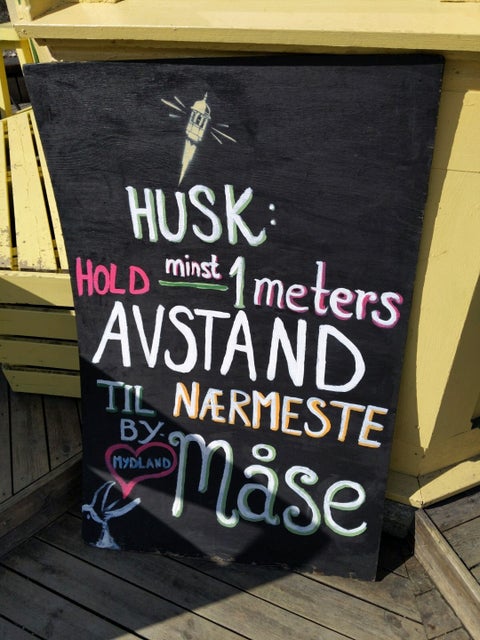 HUSK:
HOLD minst 1 meters
AVSTAND
TIL NÆRMESTE
BY- Måse
MYDLAND